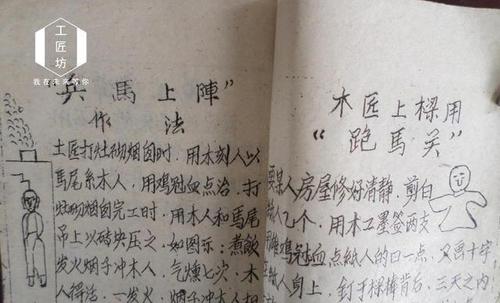 工匠坊
我在未来等你
“兵馬上陣”
作法
土匠打灶砌烟囱时，用木刻人以
馬尾系木人，用鸡冠血点治，打
灶砌烟囱完工时，用木人和馬尾
吊上以砖块压之，如图示：煮飲
发火烟子冲木人，气燻七次，木
人得活，一发火，烟子相
木匠上樑用
“跑馬关”
要某人房屋修好清静，剪白
纸人几个，用木工墨签两支
用雄鸡冠血点紙人的口一点，又画十字
紙人身上，钉于樑榫背后，三天之内